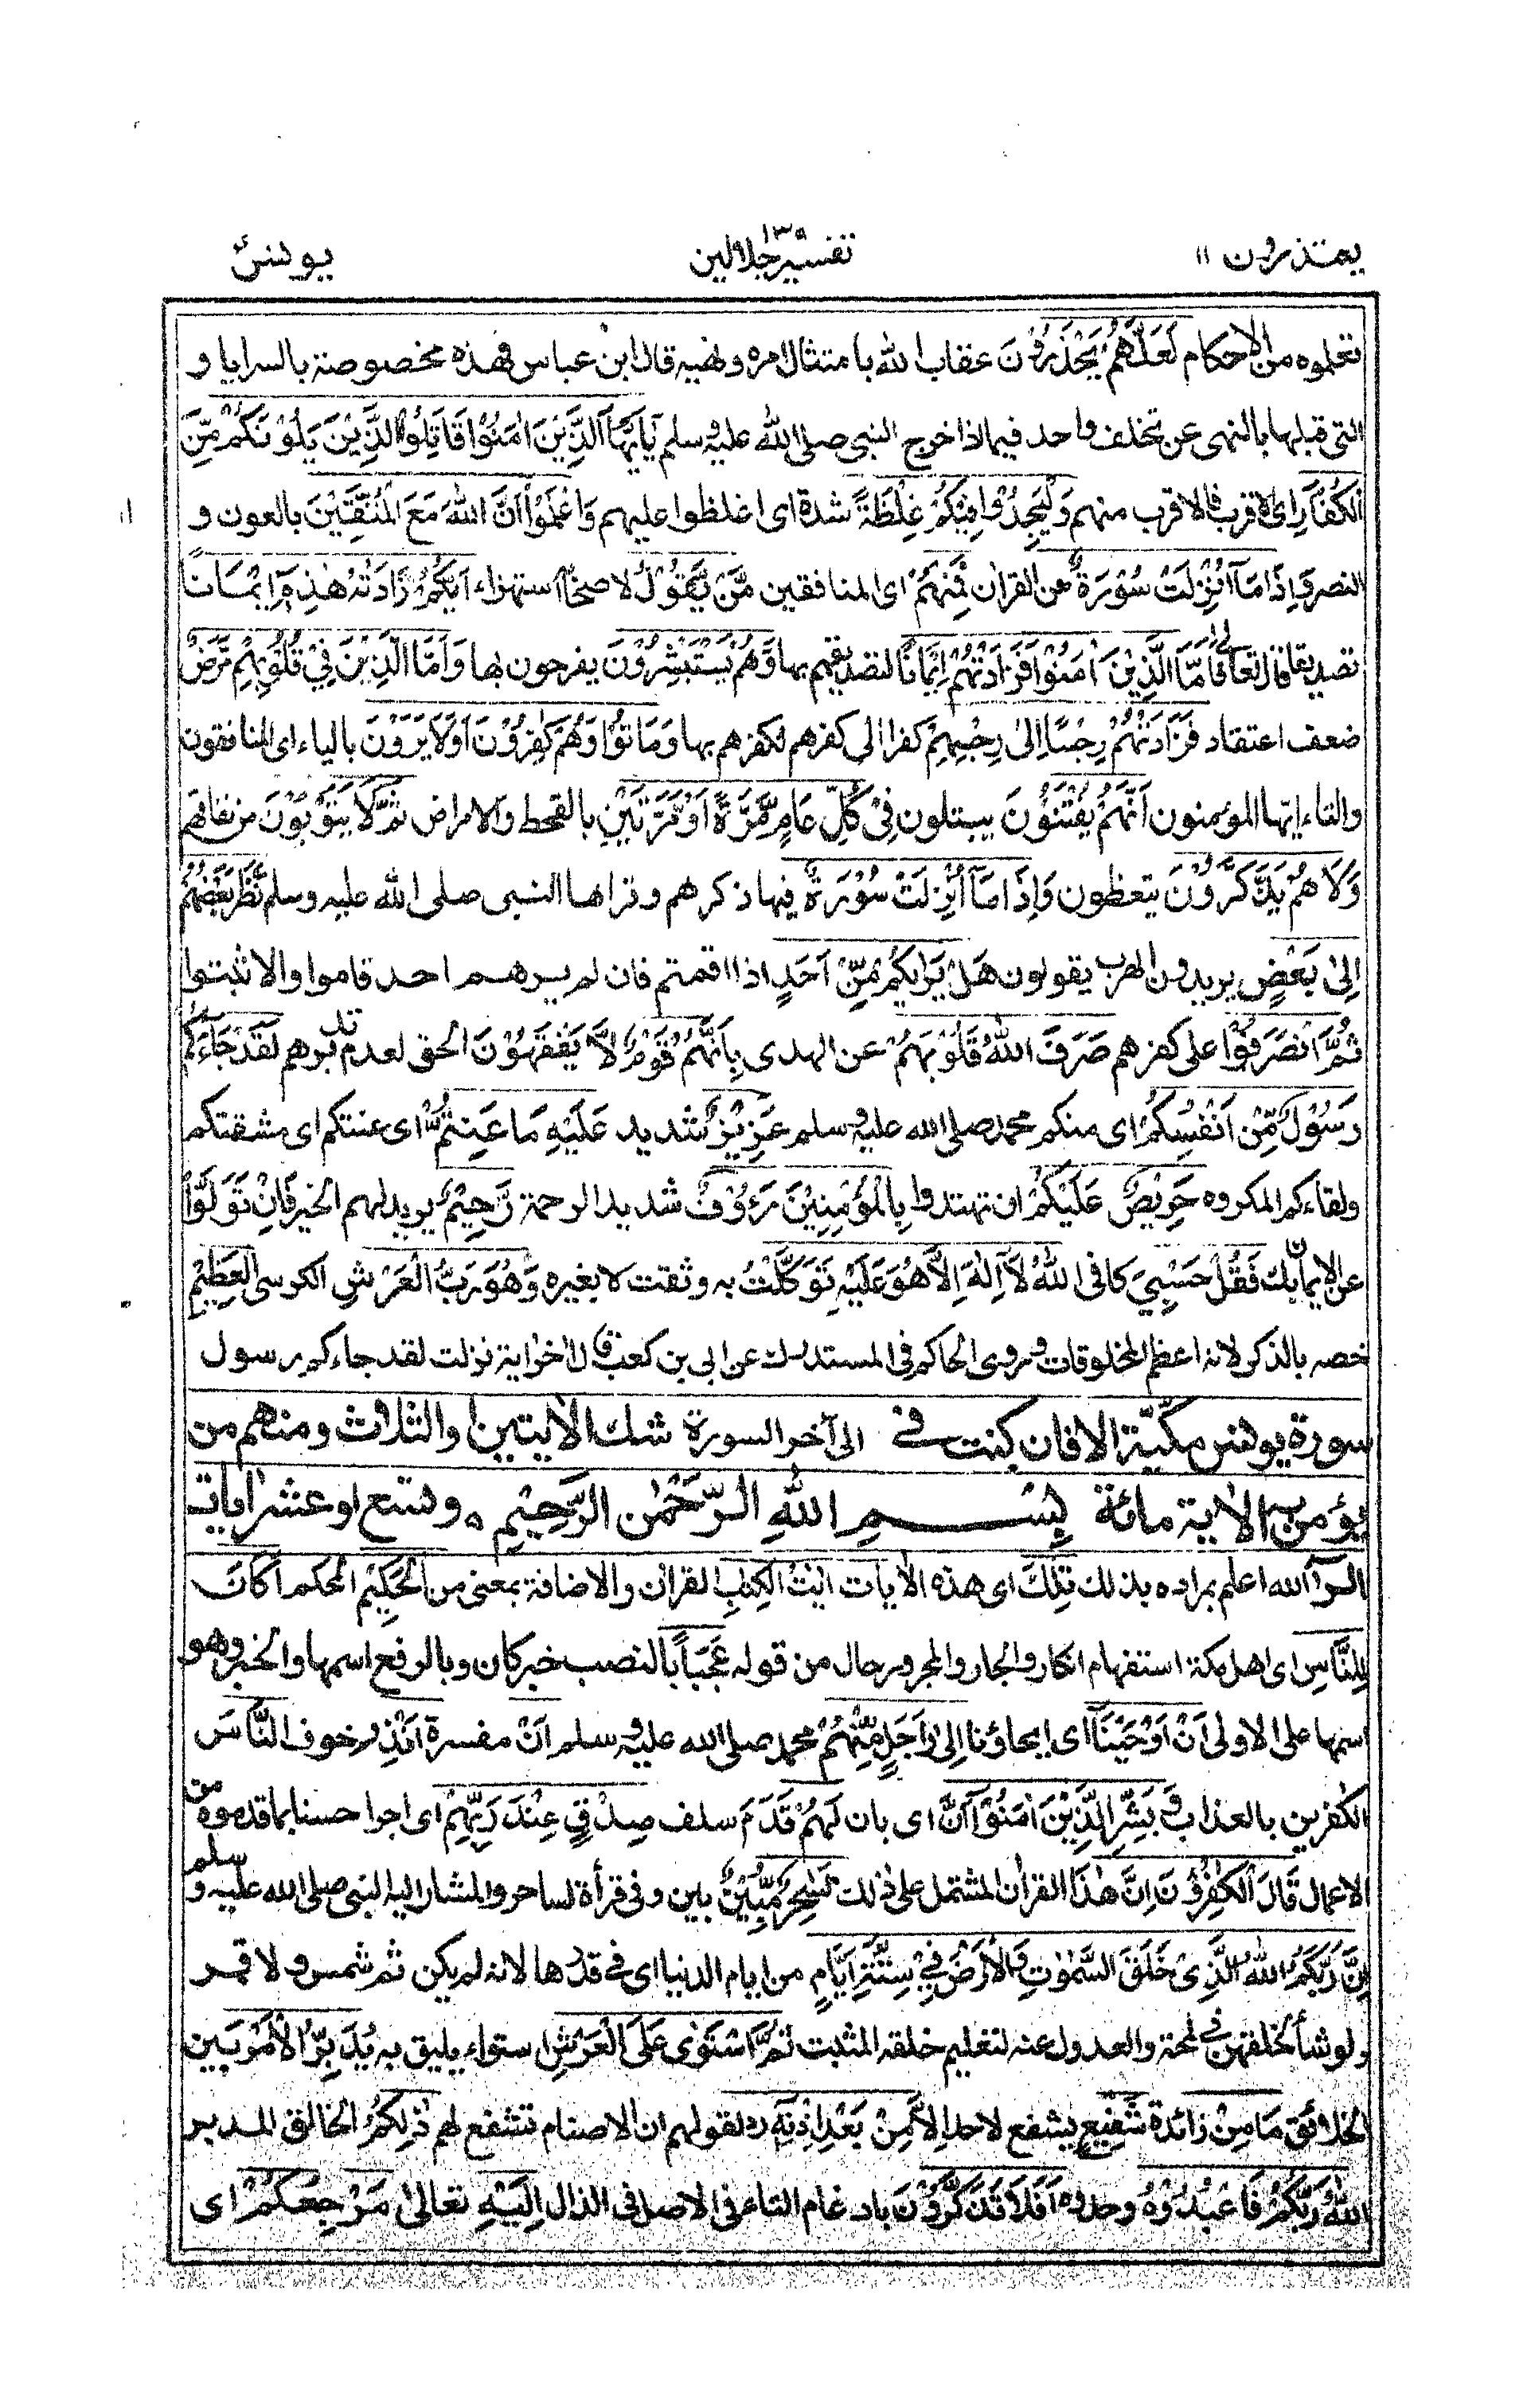 یعتذرون ۱۱
تفسیر جلالین
یونس
تعلموه من الاحكام لَعَلَّهُمْ يَحْذَرُوْنَ عقاب الله بامتثال امره ونهيه قال ابن عباس فهذه مخصوصة بالسرايا و
التى قبلها بالنهى عن تخلف واحد فيما اذا خرج النبى صلى الله عليه وسلم يٰٓاَيُّهَا الَّذِيْنَ اٰمَنُوْا قَاتِلُوا الَّذِيْنَ يَلُوْنَكُمْ مِّنَ
الْكُفَّارِ اى الاقرب فالاقرب منهم وَلْيَجِدُوْا فِيْكُمْ غِلْظَةً شدة اى اغلظوا عليهم وَاعْلَمُوْٓا اَنَّ اللّٰهَ مَعَ الْمُتَّقِيْنَ بالعون و
النصر وَاِذَا مَآ اُنْزِلَتْ سُوْرَةٌ من القراٰن فَمِنْهُمْ اى المنافقين مَّنْ يَّقُوْلُ لاصحابه استهزاء اَيُّكُمْ زَادَتْهُ هٰذِهٖٓ اِيْمَانًا
تصديقا قال تعالى فَاَمَّا الَّذِيْنَ اٰمَنُوْا فَزَادَتْهُمْ اِيْمَانًا لتصديقهم بها وَّهُمْ يَسْتَبْشِرُوْنَ يفرحون بها وَاَمَّا الَّذِيْنَ فِيْ قُلُوْبِهِمْ مَّرَضٌ
ضعف اعتقاد فَزَادَتْهُمْ رِجْسًا اِلٰى رِجْسِهِمْ كفرا الى كفرهم لكفرهم بها وَمَاتُوْا وَهُمْ كٰفِرُوْنَ اَوَلَا يَرَوْنَ بالياء اى المنافقون
والتاء ايها المؤمنون اَنَّهُمْ يُفْتَنُوْنَ يبتلون فِيْ كُلِّ عَامٍ مَّرَّةً اَوْ مَرَّتَيْنِ بالقحط والامراض ثُمَّ لَا يَتُوْبُوْنَ من نفاقهم
وَلَا هُمْ يَذَّكَّرُوْنَ يتعظون وَاِذَا مَآ اُنْزِلَتْ سُوْرَةٌ فيها ذكرهم وقراها النبى صلى الله عليه وسلم نَّظَرَ بَعْضُهُمْ
اِلٰى بَعْضٍ يريدون الهرب يقولون هَلْ يَرٰىكُمْ مِّنْ اَحَدٍ اذا اقمتم فان لم يرهم احد قاموا والا ثبتوا
ثُمَّ انْصَرَفُوْا على كفرهم صَرَفَ اللّٰهُ قُلُوْبَهُمْ عن الهدى بِاَنَّهُمْ قَوْمٌ لَّا يَفْقَهُوْنَ الحق لعدم تدبرهم لَقَدْ جَآءَكُمْ
رَسُوْلٌ مِّنْ اَنْفُسِكُمْ اى منكم محمد صلى الله عليه وسلم عَزِيْزٌ شديد عَلَيْهِ مَا عَنِتُّمْ اى عنتكم اى مشقتكم
ولقاءكم المكروه حَرِيْصٌ عَلَيْكُمْ ان تهتدوا بِالْمُؤْمِنِيْنَ رَءُوْفٌ شديد الرحمة رَّحِيْمٌ يريد لهم الخير فَاِنْ تَوَلَّوْا
عن الايمان بك فَقُلْ حَسْبِيَ كافى اللّٰهُ لَآ اِلٰهَ اِلَّا هُوَ عَلَيْهِ تَوَكَّلْتُ به وثقت لا بغيره وَهُوَ رَبُّ الْعَرْشِ الكرسى الْعَظِيْمِ
خصه بالذكر لانه اعظم المخلوقات وروى الحاكم فى المستدرك عن ابى بن كعب قال اٰخر اية نزلت لقد جاءكم رسول
سورة يونس مكيّة الا فان كنت فى الى آخر السورة شك الايتين او الثلاث ومنهم من
يؤمن به الاية مائة بِسْمِ اللّٰهِ الرَّحْمٰنِ الرَّحِيْمِ ٥ وتسع او عشر اٰيات
الٓرٰ الله اعلم بمراده بذلك تِلْكَ اى هذه الاٰيات اٰيٰتُ الْكِتٰبِ القراٰن والاضافة بمعنى من الْحَكِيْمِ المحكم اَكَانَ
لِلنَّاسِ اى اهل مكة استفهام انكار والجار والمجرور حال من قوله عَجَبًا بالنصب خبر كان وبالرفع اسمها والخبر وهو
اسمها على الاولى اَنْ اَوْحَيْنَآ اى ايحاؤنا اِلٰى رَجُلٍ مِّنْهُمْ محمد صلى الله عليه وسلم اَنْ مفسرة اَنْذِرِ خوف النَّاسَ
الكٰفرين بالعذاب وَبَشِّرِ الَّذِيْنَ اٰمَنُوْٓا اَنَّ اى بان لَهُمْ قَدَمَ سلف صِدْقٍ عِنْدَ رَبِّهِمْ اى اجرا حسنا بما قدموه من
الاعمال قَالَ الْكٰفِرُوْنَ اِنَّ هٰذَا القراٰن المشتمل على ذٰلك لَسِحْرٌ مُّبِيْنٌ بين وفى قرأة لساحر والمشار اليه النبى صلى الله عليه وسلم
اِنَّ رَبَّكُمُ اللّٰهُ الَّذِيْ خَلَقَ السَّمٰوٰتِ وَالْاَرْضَ فِيْ سِتَّةِ اَيَّامٍ من ايام الدنيا اى فى قدرها لانه لم يكن ثم شمس ولا قمر
ولو شاء لخلقهن فى لمحة والعدول عنه لتعليم خلقه التثبت ثُمَّ اسْتَوٰى عَلَى الْعَرْشِ استواء يليق به يُدَبِّرُ الْاَمْرَ بين
الخلائق مَا مِنْ زائدة شَفِيْعٍ يشفع لاحد اِلَّا مِنْۢ بَعْدِ اِذْنِهٖ رد لقولهم ان الاصنام تشفع لهم ذٰلِكُمُ الخالق المدبر
اللّٰهُ رَبُّكُمْ فَاعْبُدُوْهُ وحدوه اَفَلَا تَذَكَّرُوْنَ بادغام التاء فى الاصل فى الذال اِلَيْهِ تعالىٰ مَرْجِعُكُمْ اى